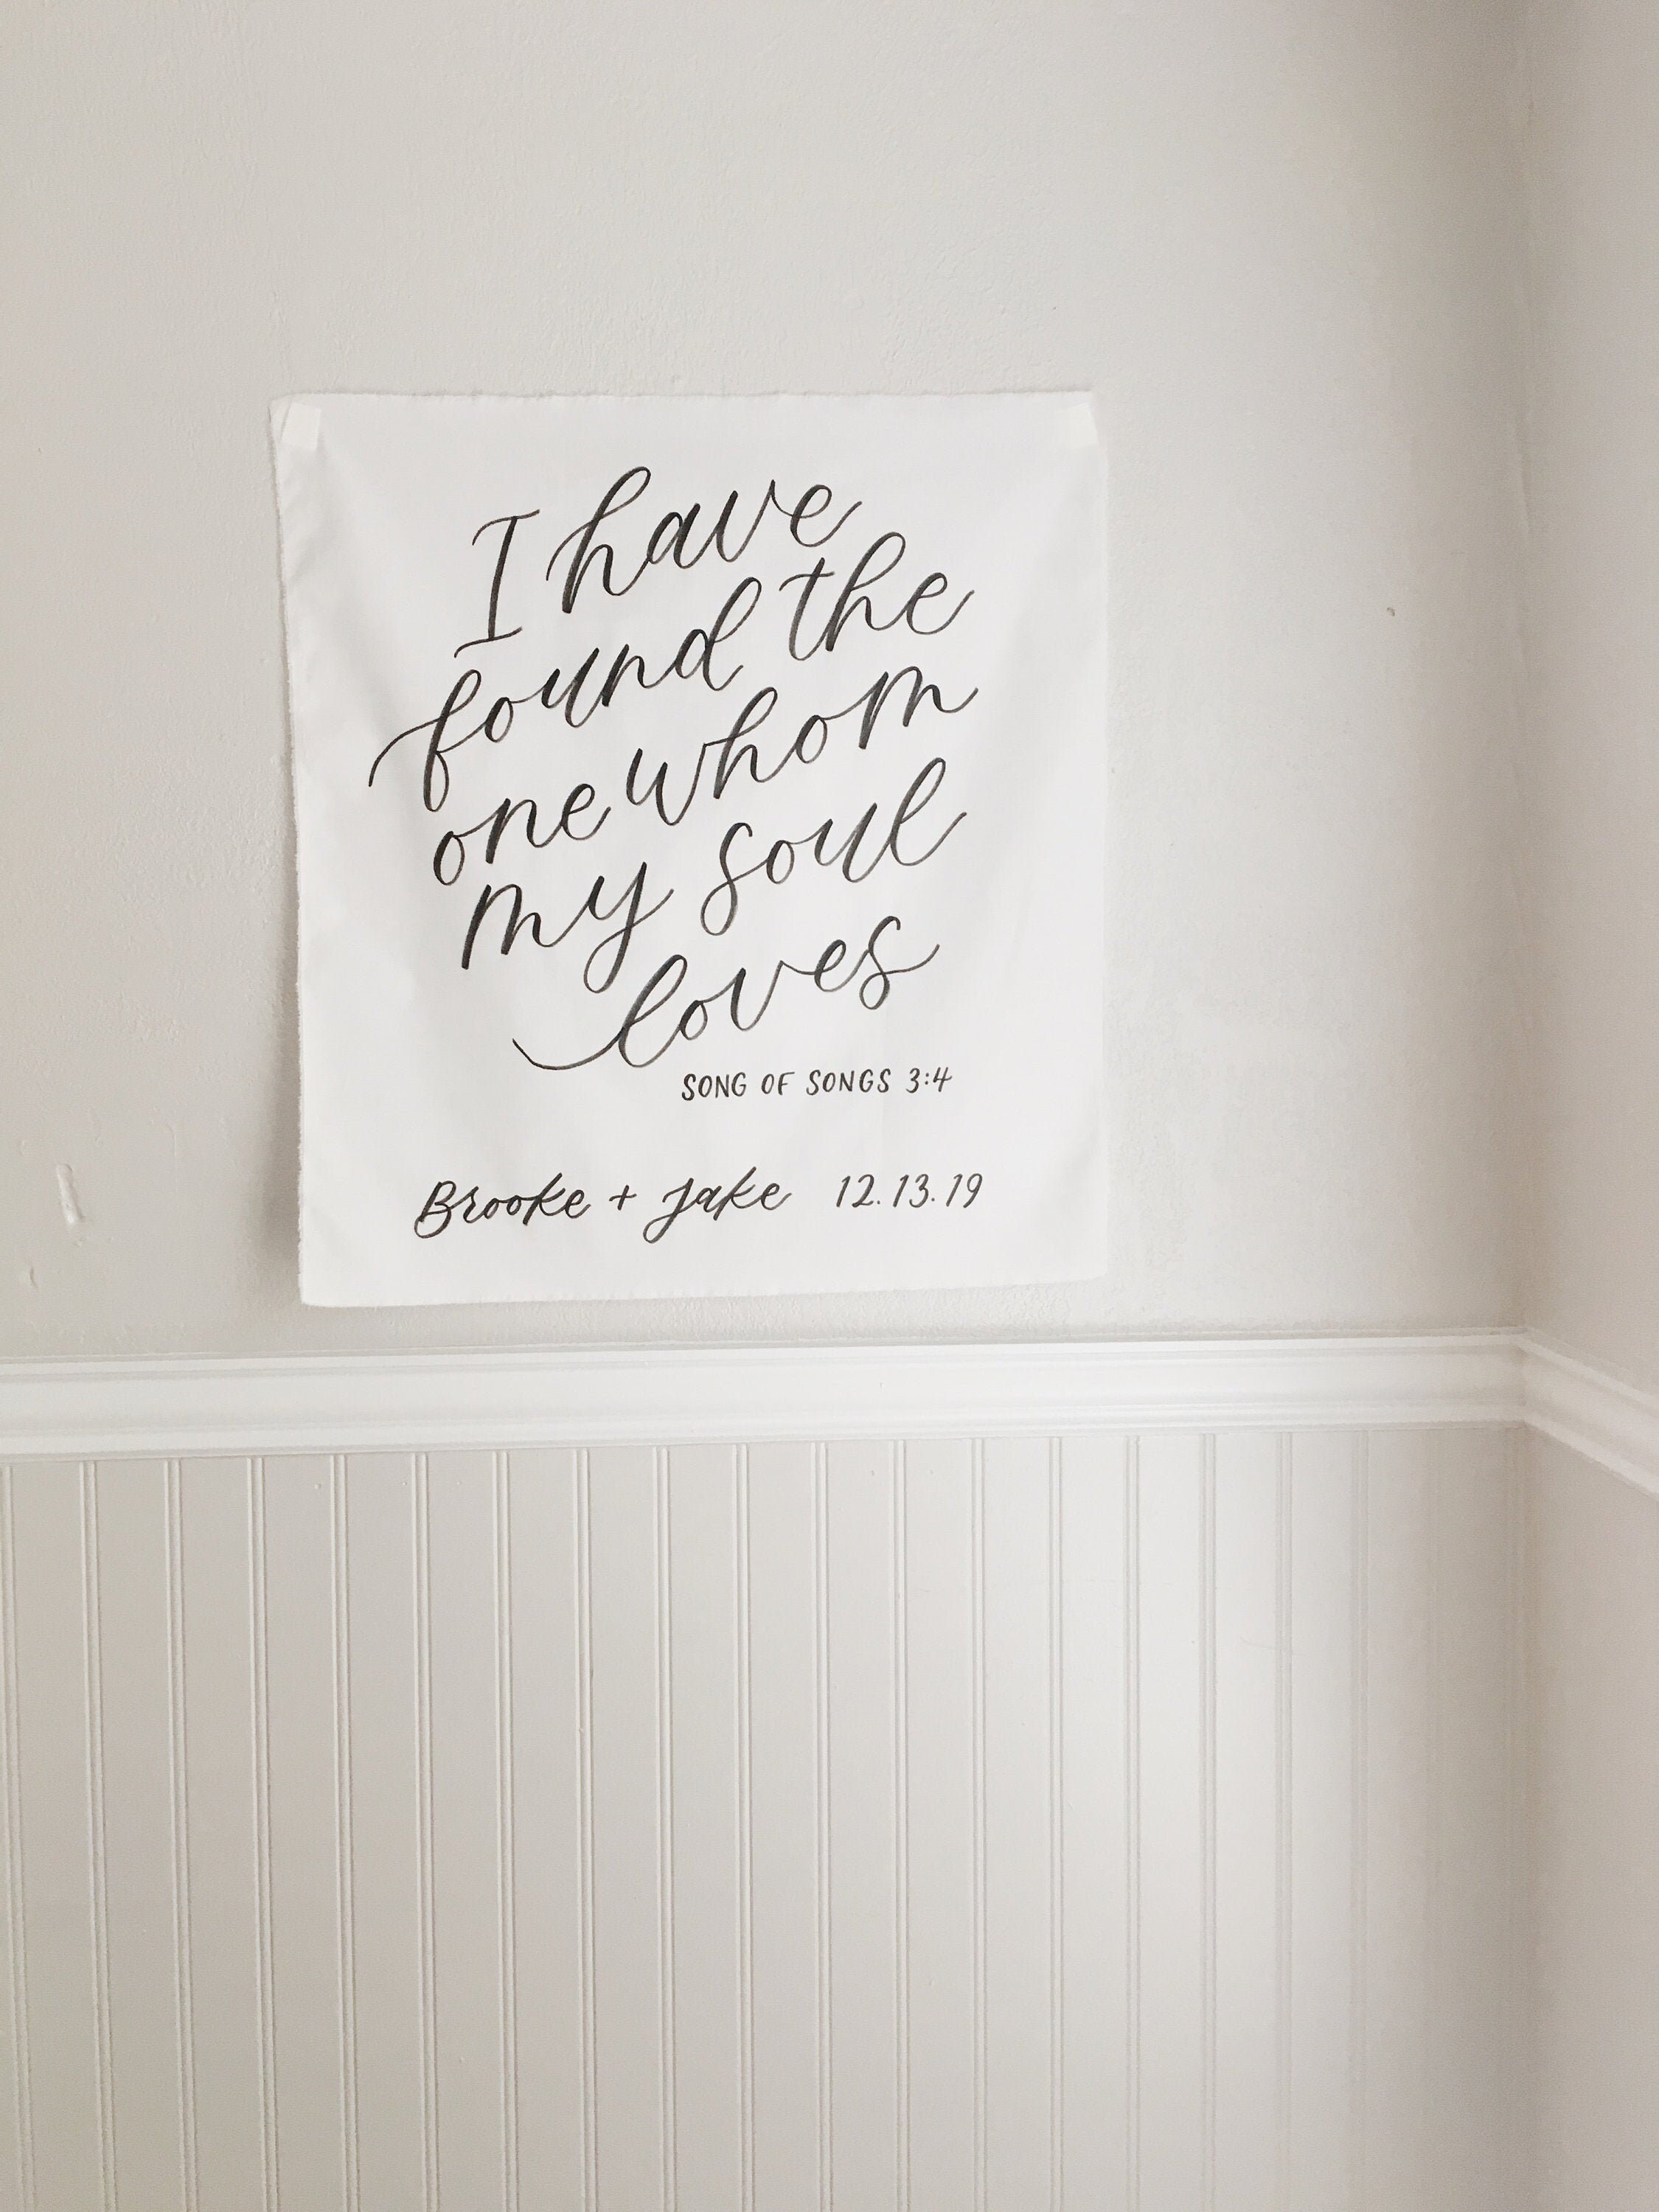 I have
found the
one whom
my soul
loves
SONG OF SONGS 3:4
Brooke + Jake 12.13.19